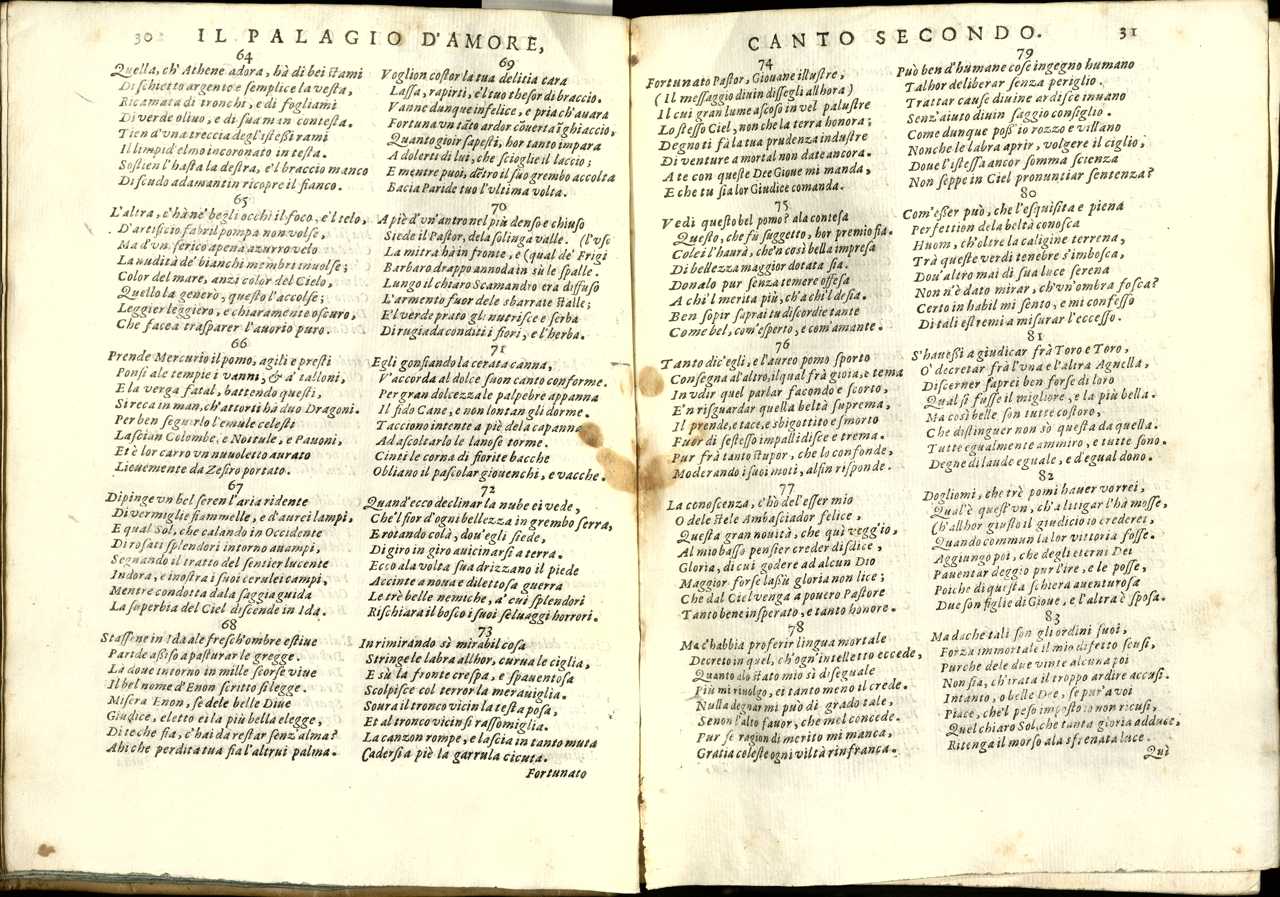 30
IL PALAGIO D'AMORE,
64
Quella, ch'Athene adora, hà di bei stami
Di schietto argento e semplice la vesta,
Ricamata di tronchi, e di fogliami
Di verde oliuo, e di sua man contesta.
Tien d'vna treccia degl'istessi rami
Il limpid'elmo incoronato in testa.
Sostien l'hasta la destra, e'l braccio manco
Di scudo adamantin ricopre il fianco.
65
L'altra, c'hà ne' begli occhi il foco, e'l telo,
D'artificio fabril pompa non volse,
Ma d'vn serico apena azurro velo
La nudità de' bianchi membri inuolse;
Color del mare, anzi color del Cielo,
Quello la generò, questo l'accolse;
Leggier leggiero, e chiaramente oscuro,
Che facea trasparer l'auorio puro.
66
Prende Mercurio il pomo, agili e presti
Ponsi ale tempie i vanni, & a' talloni,
E la verga fatal, battendo questi,
Si reca in man, ch'attorti hà duo Dragoni.
Per ben seguirlo l'emule celesti
Lascian Colombe, e Nottule, e Pauoni,
Et è lor carro vn nuuoletto aurato
Lieuemente da Zefiro portato.
67
Dipinge vn bel seren l'aria ridente
Di vermiglie fiammelle, e d'aurei lampi,
E qual Sol, che calando in Occidente
Di rosati splendori intorno auampi,
Segnando il tratto del sentier lucente
Indora, e inostra i suoi cerulei campi,
Mentre condotta dala saggia guida
La superbia del Ciel discende in Ida.
68
Stassene in Ida ale fresch'ombre estiue
Paride assiso a pasturar le gregge.
Là doue intorno in mille scorse viue
Il bel nome d'Enon scritto si legge.
Misera Enon, se dele belle Diue
Giudice, eletto ei la più bella elegge,
Di te che fia, c'hai da restar senz'alma?
Ahi che perdita tua fia l'altrui palma.
69
Voglion costor la tua delitia cara
Lassa, rapirti, e'l tuo thesor di braccio.
Vanne dunque infelice, e pria ch'auara
Fortuna vn tãto ardor cõuerta ĩ ghiaccio,
Quanto gioir sapesti, hor tanto impara
A dolerti di lui, che scioglie il laccio;
E mentre puoi, dẽtro il suo grembo accolta
Bacia Paride tuo l'vltima volta.
70
A piè d'vn'antro nel più denso e chiuso
Siede il Pastor, dela solinga valle.
La mitra hà in fronte, e (qual de' Frigi (l'vso
Barbaro drappo annoda in sù le spalle.
Lungo il chiaro Scamandro era diffuso
L'armento fuor dele sbarrate stalle;
E'l verde prato gli nutrisce e serba
Di rugiada conditi i fiori, e l'herba.
71
Egli gonfiando la cerata canna,
V'accorda al dolce suon canto conforme.
Per gran dolcezza le palpebre appanna
Il fido Cane, e non lontan gli dorme.
Tacciono intente a piè dela capanna
Ad ascoltarlo le lanose torme.
Cinti le corna di fiorite bacche
Obliano il pascolar giouenchi, e vacche.
72
Quand'ecco declinar la nube ei vede,
Che'l fior d'ogni bellezza in grembo serra,
E rotando colà, dou'egli siede,
Di giro in giro auicinarsi a terra.
Ecco ala volta sua drizzano il piede
Accinte a noua e dilettosa guerra
Le trè belle nemiche, a' cui splendori
Rischiara il bosco i suoi seluaggi horrori.
73
In rimirando sì mirabil cosa
Stringe le labra allhor, curua le ciglia,
E sù la fronte crespa, e spauentosa
Scolpisce col terror la merauiglia.
Soura il tronco vicin la testa posa,
Et al tronco vicin si rassomiglia.
La canzon rompe, e lascia in tanto muta
Cadersi a piè la garrula cicuta.
Fortunato
CANTO SECONDO.
31
74
Fortunato Pastor, Giouane illustre,
(Il messaggio diuin dissegli allhora)
Il cui gran lume ascoso in vel palustre
Lo stesso Ciel, non che la terra honora;
Degno ti fà la tua prudenza industre
Di venture a mortal non date ancora.
A te con queste Dee Gioue mi manda,
E che tu sia lor Giudice comanda.
75
Vedi questo bel pomo? ala contesa
Questo, che fù suggetto, hor premio fia.
Colei l'haurà, che'n così bella impresa
Di bellezza maggior dotata sia.
Donalo pur senza temere offesa
A chi'l merita più, ch'a chi'l desia.
Ben sopir saprai tu discordie tante
Come bel, com'esperto, e com'amante.
76
Tanto dic'egli, e l'aureo pomo sporto
Consegna al'altro, ilqual frà gioia, e tema
In vdir quel parlar facondo e scorto,
E'n risguardar quella beltà suprema,
Il prende, e tace, e sbigottito e smorto
Fuor di sestesso impallidisce e trema.
Pur frà tanto stupor, che lo confonde,
Moderando i suoi moti, alfin risponde.
77
La conoscenza, c'hò del'esser mio
O dele stele Ambasciador felice,
Questa gran nouità, che quì veggio,
Al mio basso pensier creder disdice,
Gloria, di cui godere ad alcun Dio
Maggior forse lassù gloria non lice;
Che dal Ciel venga a pouero Pastore
Tanto bene insperato, e tanto honore.
78
Ma c'habbia proferir lingua mortale
Decreto in quel, ch'ogn'intelletto eccede,
Quanto alo stato mio sì diseguale
Più mi riuolgo, ei tanto meno il crede.
Nulla degnar mi può di grado tale,
Se non l'alto fauor, che mel concede.
Pur se ragion di merito mi manca,
Gratia celeste ogni viltà rinfranca.
79
Può ben d'humane cose ingegno humano
Talhor deliberar senza periglio.
Trattar cause diuine ardisce inuano
Senz'aiuto diuin saggio consiglio.
Come dunque poss'io rozzo e villano
Nonche le labra aprir, volgere il ciglio,
Doue l'istessa ancor somma scienza
Non seppe in Ciel pronuntiar sentenza?
80
Com'esser può, che l'esquisita e piena
Perfettion dela beltà conosca
Huom, ch'oltre la caligine terrena,
Trà queste verdi tenebre s'imbosca,
Dou'altro mai di sua luce serena
Non n'è dato mirar, ch'vn'ombra fosca?
Certo inhabil mi sento, e mi confesso
Di tali estremi a misurar l'eccesso.
81
S'hauessi a giudicar frà Toro e Toro,
O' decretar frà l'vna e l'altra Agnella,
Discerner saprei ben forse di loro
Qual si fusse il migliore, e la più bella.
Ma così belle son tutte costoro,
Che distinguer non sò questa da quella.
Tutte egualmente ammiro, e tutte sono.
Degne di laude eguale, e d'egual dono.
82
Dogliomi, che trè pomi hauer vorrei,
Qual'è quest'vn, ch'a litigar l'hà mosse,
Ch'allhor giusto il giudicio io crederei,
Quando commun la lor vittoria fosse.
Aggiungo poi, che degli eterni Dei
Pauentar deggio pur l'ire, e le posse,
Poiche di questa schiera auenturosa
Due son figlie di Gioue, e l'altra è sposa.
83
Ma dache tali son gli ordini suoi,
Forza immortale il mio difetto scusi,
Purche dele due vinte alcuna poi
Non sia, ch'irata il troppo ardire accusi.
Intanto, o belle Dee, se pur'a voi
Piace, che'l peso impostoio non ricusi,
Quel chiaro Sol, che tanta gloria adduce,
Ritenga il morso ala sfrenata luce.
Quì